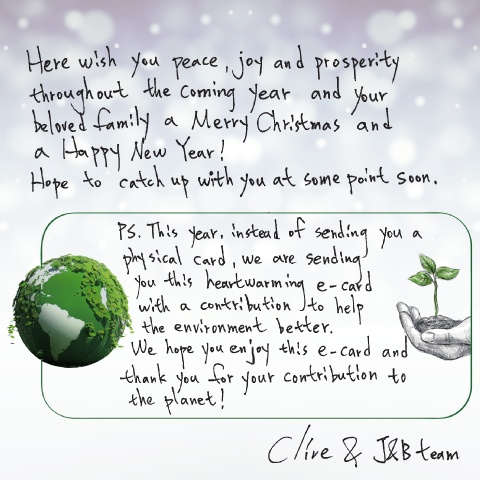 Here wish you peace, joy and prosperity
throughout the coming year and your
beloved family a Merry Christmas and
a Happy New Year!
Hope to catch up with you at some point soon.
PS. This year, instead of sending you a
physical card, we are sending
you this heartwarming e-card
with a contribution to help
the environment better.
We hope you enjoy this e-card and
thank you for your contribution to
the planet!
Clive & J&B team